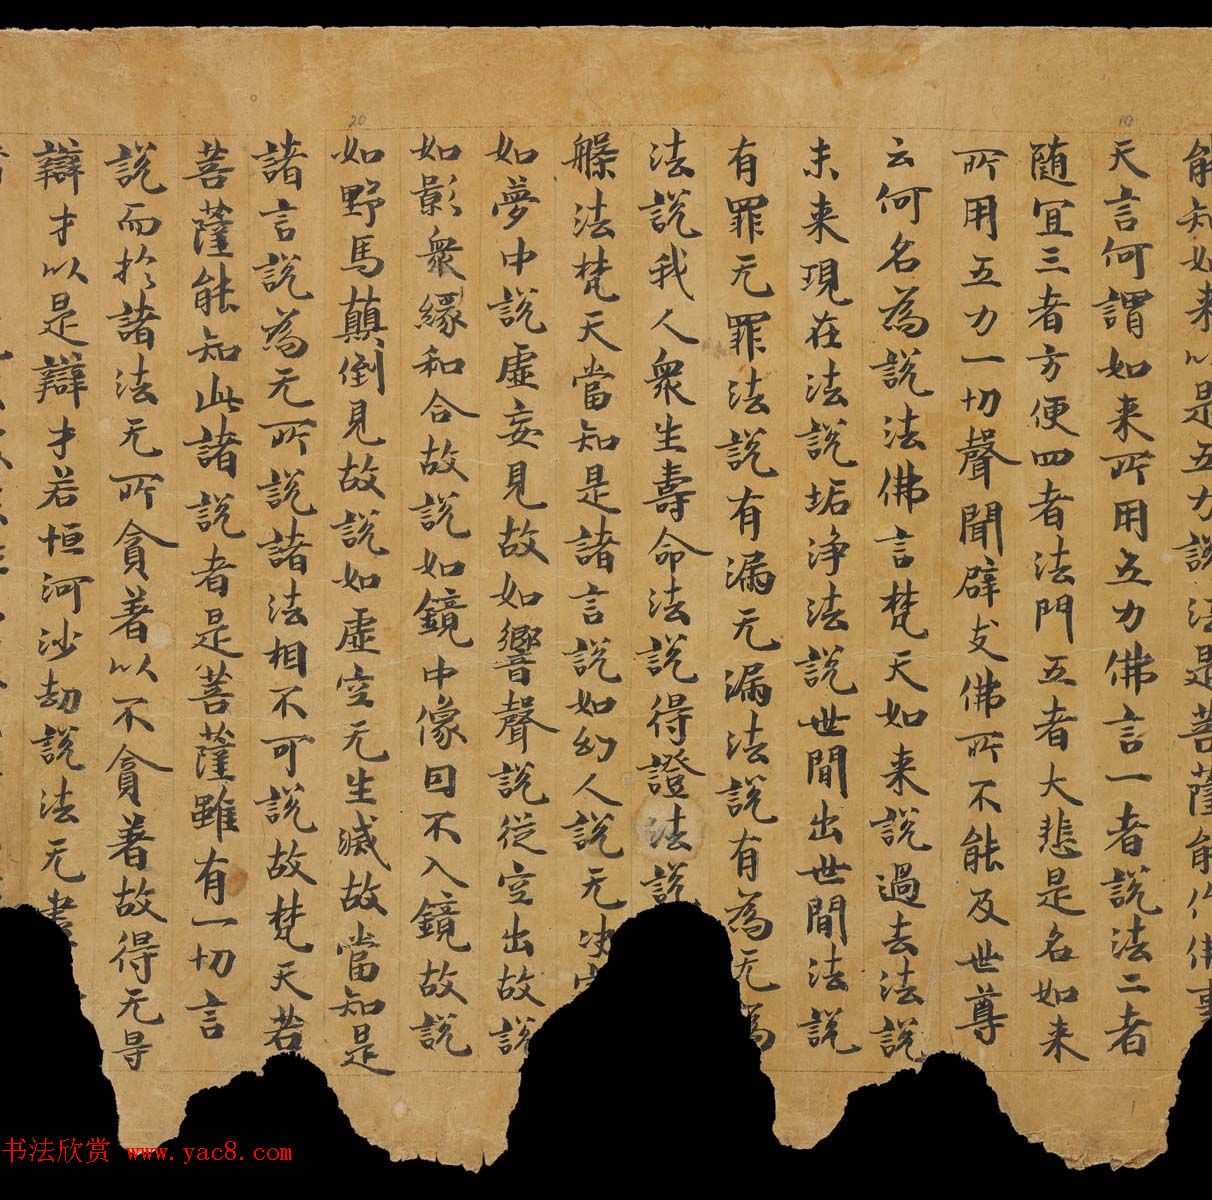 能知如来以是五力説法是菩薩能作佛事
天言何謂如来所用五力佛言一者説法二者
随冝三者方便四者法門五者大悲是名如来
所用五力一切聲聞辟支佛所不能及世尊
云何名為説法佛言梵天如来説過去法説
未来現在法説垢浄法説世間出世間法説
有罪无罪法説有漏无漏法説有為无為
法説我人衆生壽命法説得證法説
艉法梵天當知是諸言説如幻人説无决定
如夢中説虚妄見故如響聲説従空出故説
如影衆縁和合故説如鏡中像因不入鏡故説
如野馬顛倒見故説如虚空无生滅故當知是
諸言説為无所説諸法相不可説故梵天若
菩薩能知此諸説者是菩薩雖有一切言
説而於諸法无所貪著以不貪著故得无㝵
辯才以是辯才若恒河沙劫説法无盡
书法欣赏 www.yac8.com
10
20